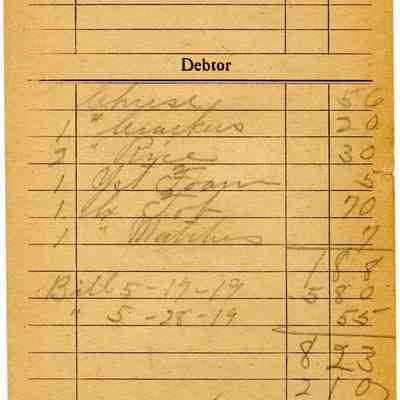 Debtor
Cheese 56
1 # Crackers 20
2 " Rice 30
1 Yst Foam 5
1 Tob 70
1 " Matches 7
1 88
Bill 5-17-19 5 80
" 5-28-19 55
8 23
2 10